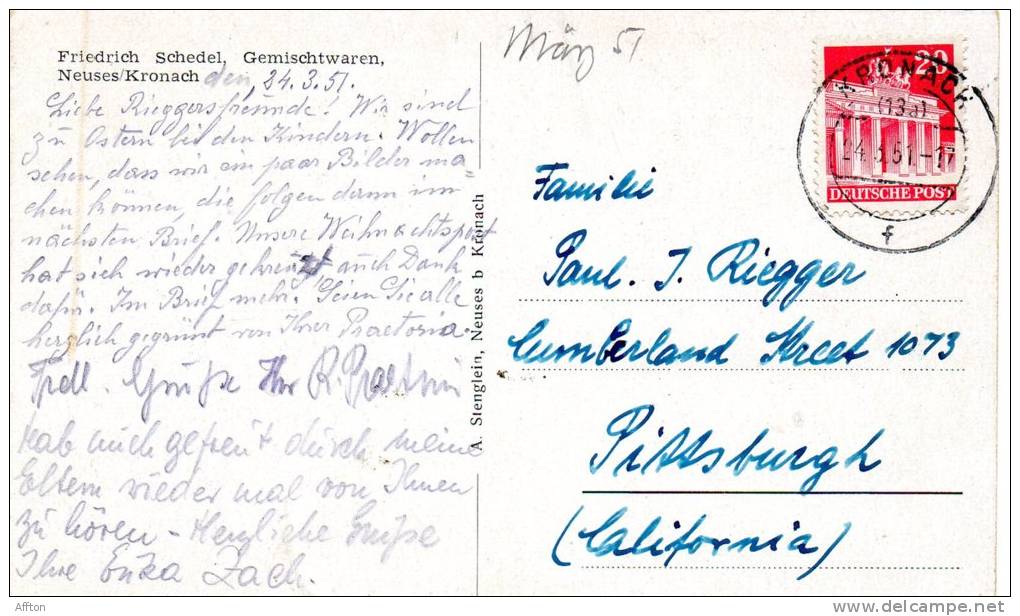 Friedrich Schedel, Gemischtwaren,
Neuses/Kronach den 24.3.51.
Liebe Rieggersfreunde! Wir sind
zu Ostern bei den Kindern. Wollen
sehen, dass wir ein paar Bilder ma-
chen können, die folgen dann im
nächsten Brief. Unsere Weihnachtspost
hat sich wieder gekreuzt, auch Dank
dafür. Im Brief mehr. Seien Sie alle
herzlich gegrüßt von Ihrer Praetoria.
Frdl. Grüße Ihr R. Praetorius
Hab mich gefreut durch meine
Eltern wieder mal von Ihnen
zu hören - Herzliche Grüße
Ihre Erika Zach.
A. Stenglein, Neuses b Kronach
März 51
20
DEUTSCHE POST
KRONACH
(13a)
24.3.51-17
f
Familie
Paul. J. Riegger
Cumberland Street 1073
Pittsburgh
(California)
Affton
http://www.delcampe.net